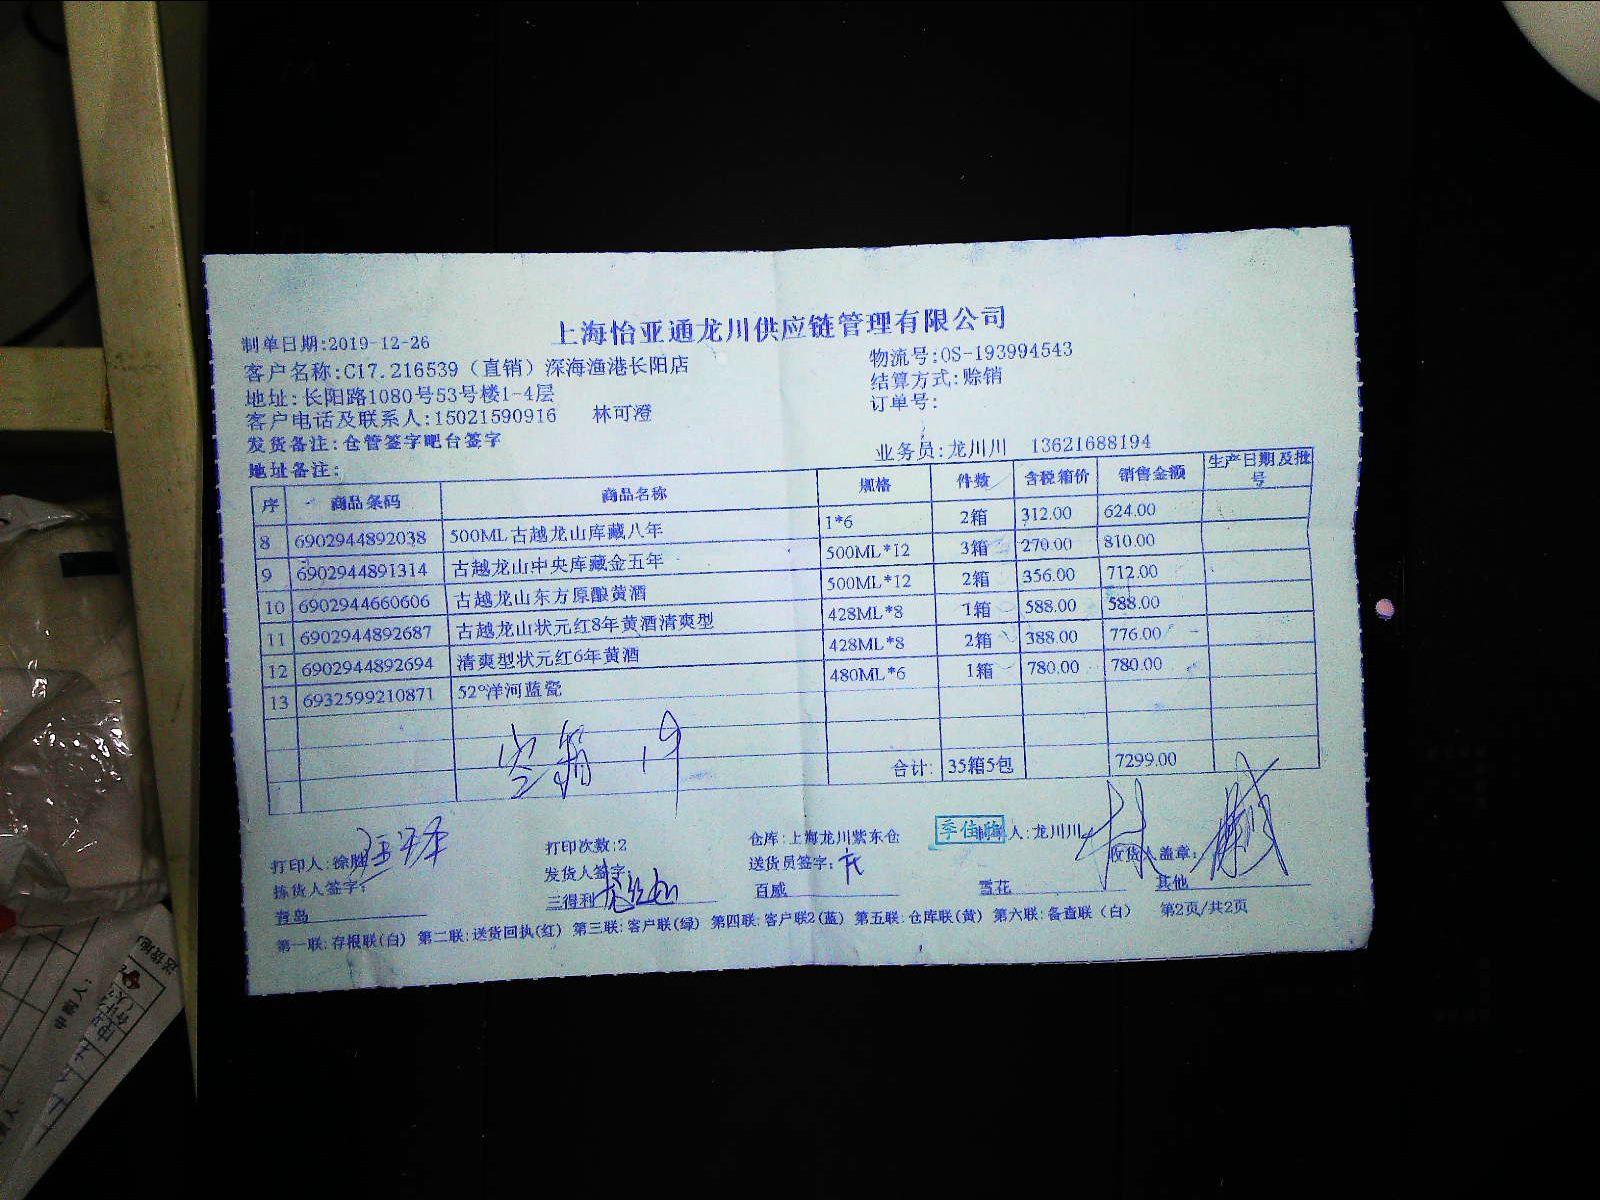 上海怡亚通龙川供应链管理有限公司
制单日期:2019-12-26
物流号:OS-193994543
客户名称:C17.216539（直销）深海渔港长阳店
结算方式:赊销
地址:长阳路1080号53号楼1-4层
订单号:
客户电话及联系人:15021590916 林可澄
发货备注:仓管签字吧台签字
业务员:龙川川 13621688194
地址备注:
序 商品条码 商品名称 规格 件数 含税箱价 销售金额 生产日期及批号
8 6902944892038 500ML古越龙山库藏八年 1*6 2箱 312.00 624.00
9 6902944891314 古越龙山中央库藏金五年 500ML*12 3箱 270.00 810.00
10 6902944660606 古越龙山东方原酿黄酒 500ML*12 2箱 356.00 712.00
11 6902944892687 古越龙山状元红8年黄酒清爽型 428ML*8 1箱 588.00 588.00
12 6902944892694 清爽型状元红6年黄酒 428ML*8 2箱 388.00 776.00
13 6932599210871 52°洋河蓝瓷 480ML*6 1箱 780.00 780.00
空箱 19
合计: 35箱5包 7299.00
打印人:徐 打印次数:2 仓库:上海龙川紫东仓 人:龙川川
拣货人签字: 发货人签字: 送货员签字: 收货人盖章:
青岛 三得利 百威 雪花 其他
第一联:存根联(白) 第二联:送货回执(红) 第三联:客户联(绿) 第四联:客户联2(蓝) 第五联:仓库联(黄) 第六联:备查联(白) 第2页/共2页
申购人: